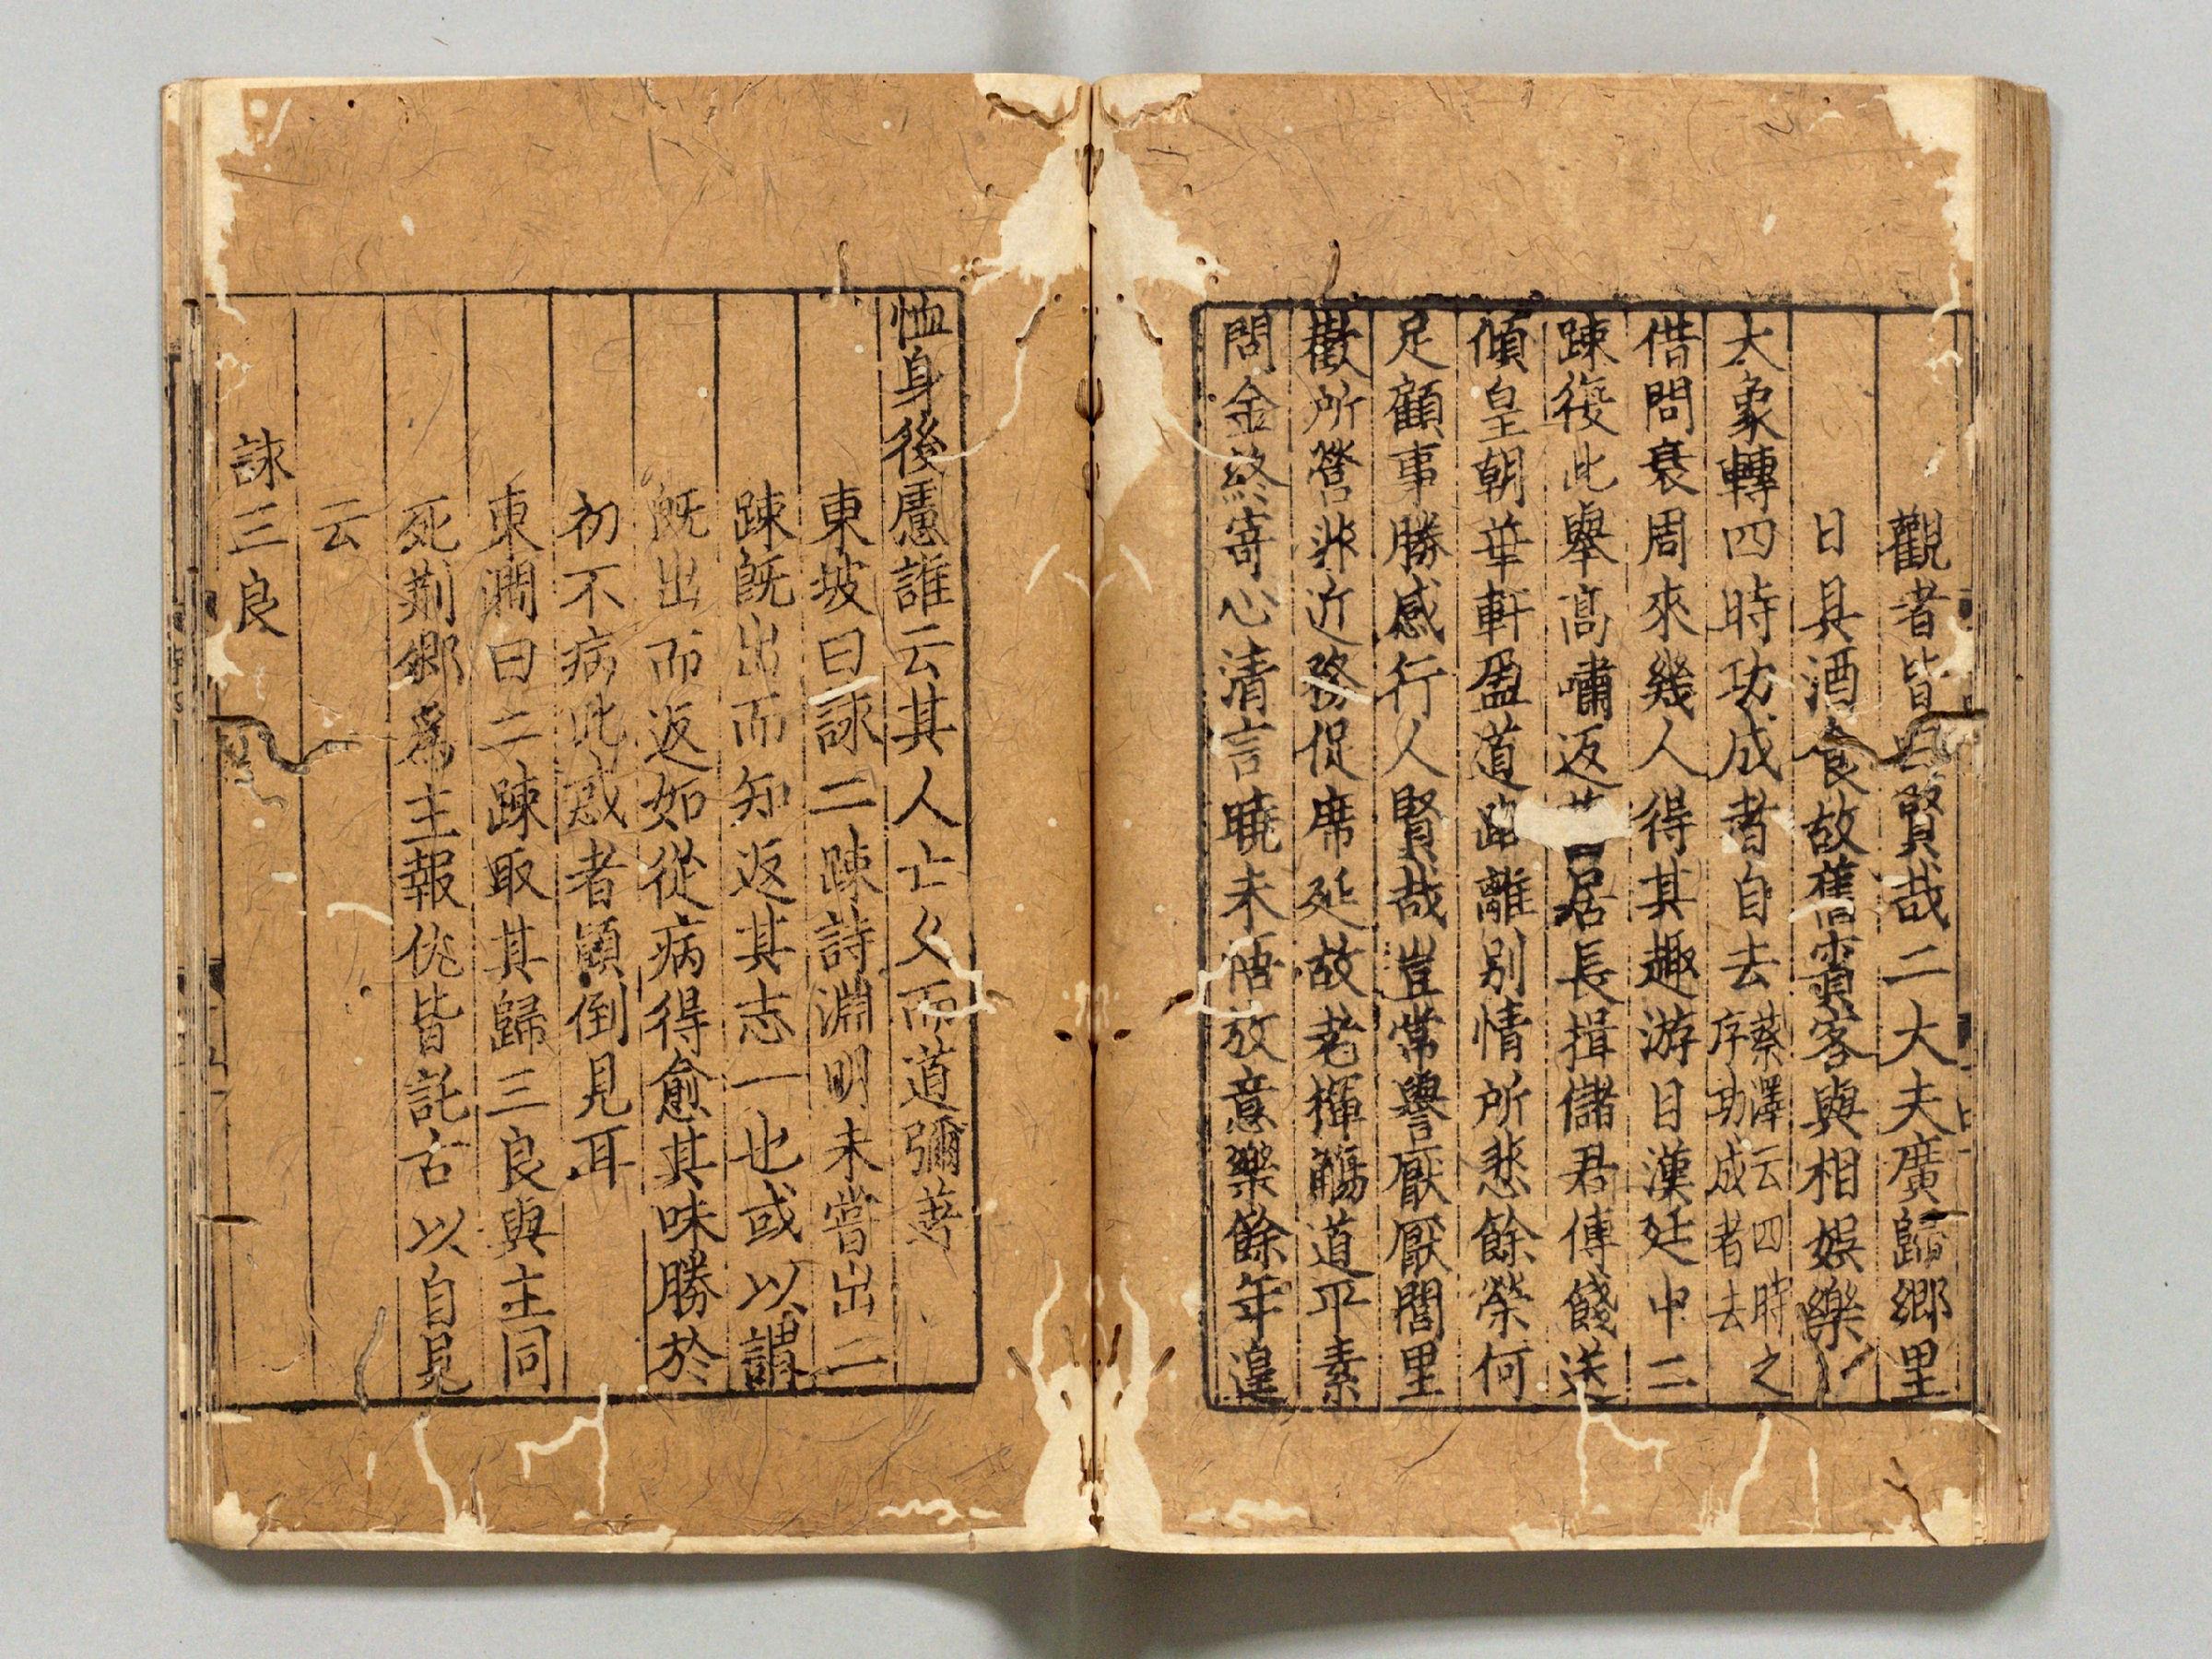 觀者皆曰賢哉二大夫廣歸鄉里
日具酒食故舊賓客與相娛樂
大象轉四時功成者自去蔡澤云四時之序功成者去
借問衰周來幾人得其趣游目漢廷中二
踈復此舉高嘯返舊居長揖儲君傅餞送
傾皇朝華軒盈道路離別情所悲餘榮何
足顧事勝感行人賢哉豈常譽厭厭閭里
歡所營非近務促席延故老揮觴道平素
問金終寄心清言曉未悟放意樂餘年遑
恤身後慮誰云其人亡久而道彌著
東坡曰詠二踈詩淵明未嘗出二
踈既出而知返其志一也或以謂
既出而返如從病得愈其味勝於
初不病此惑者顛倒見耳
東澗曰二踈取其歸三良與主同
死荊卿為主報仇皆託古以自見
云
詠三良